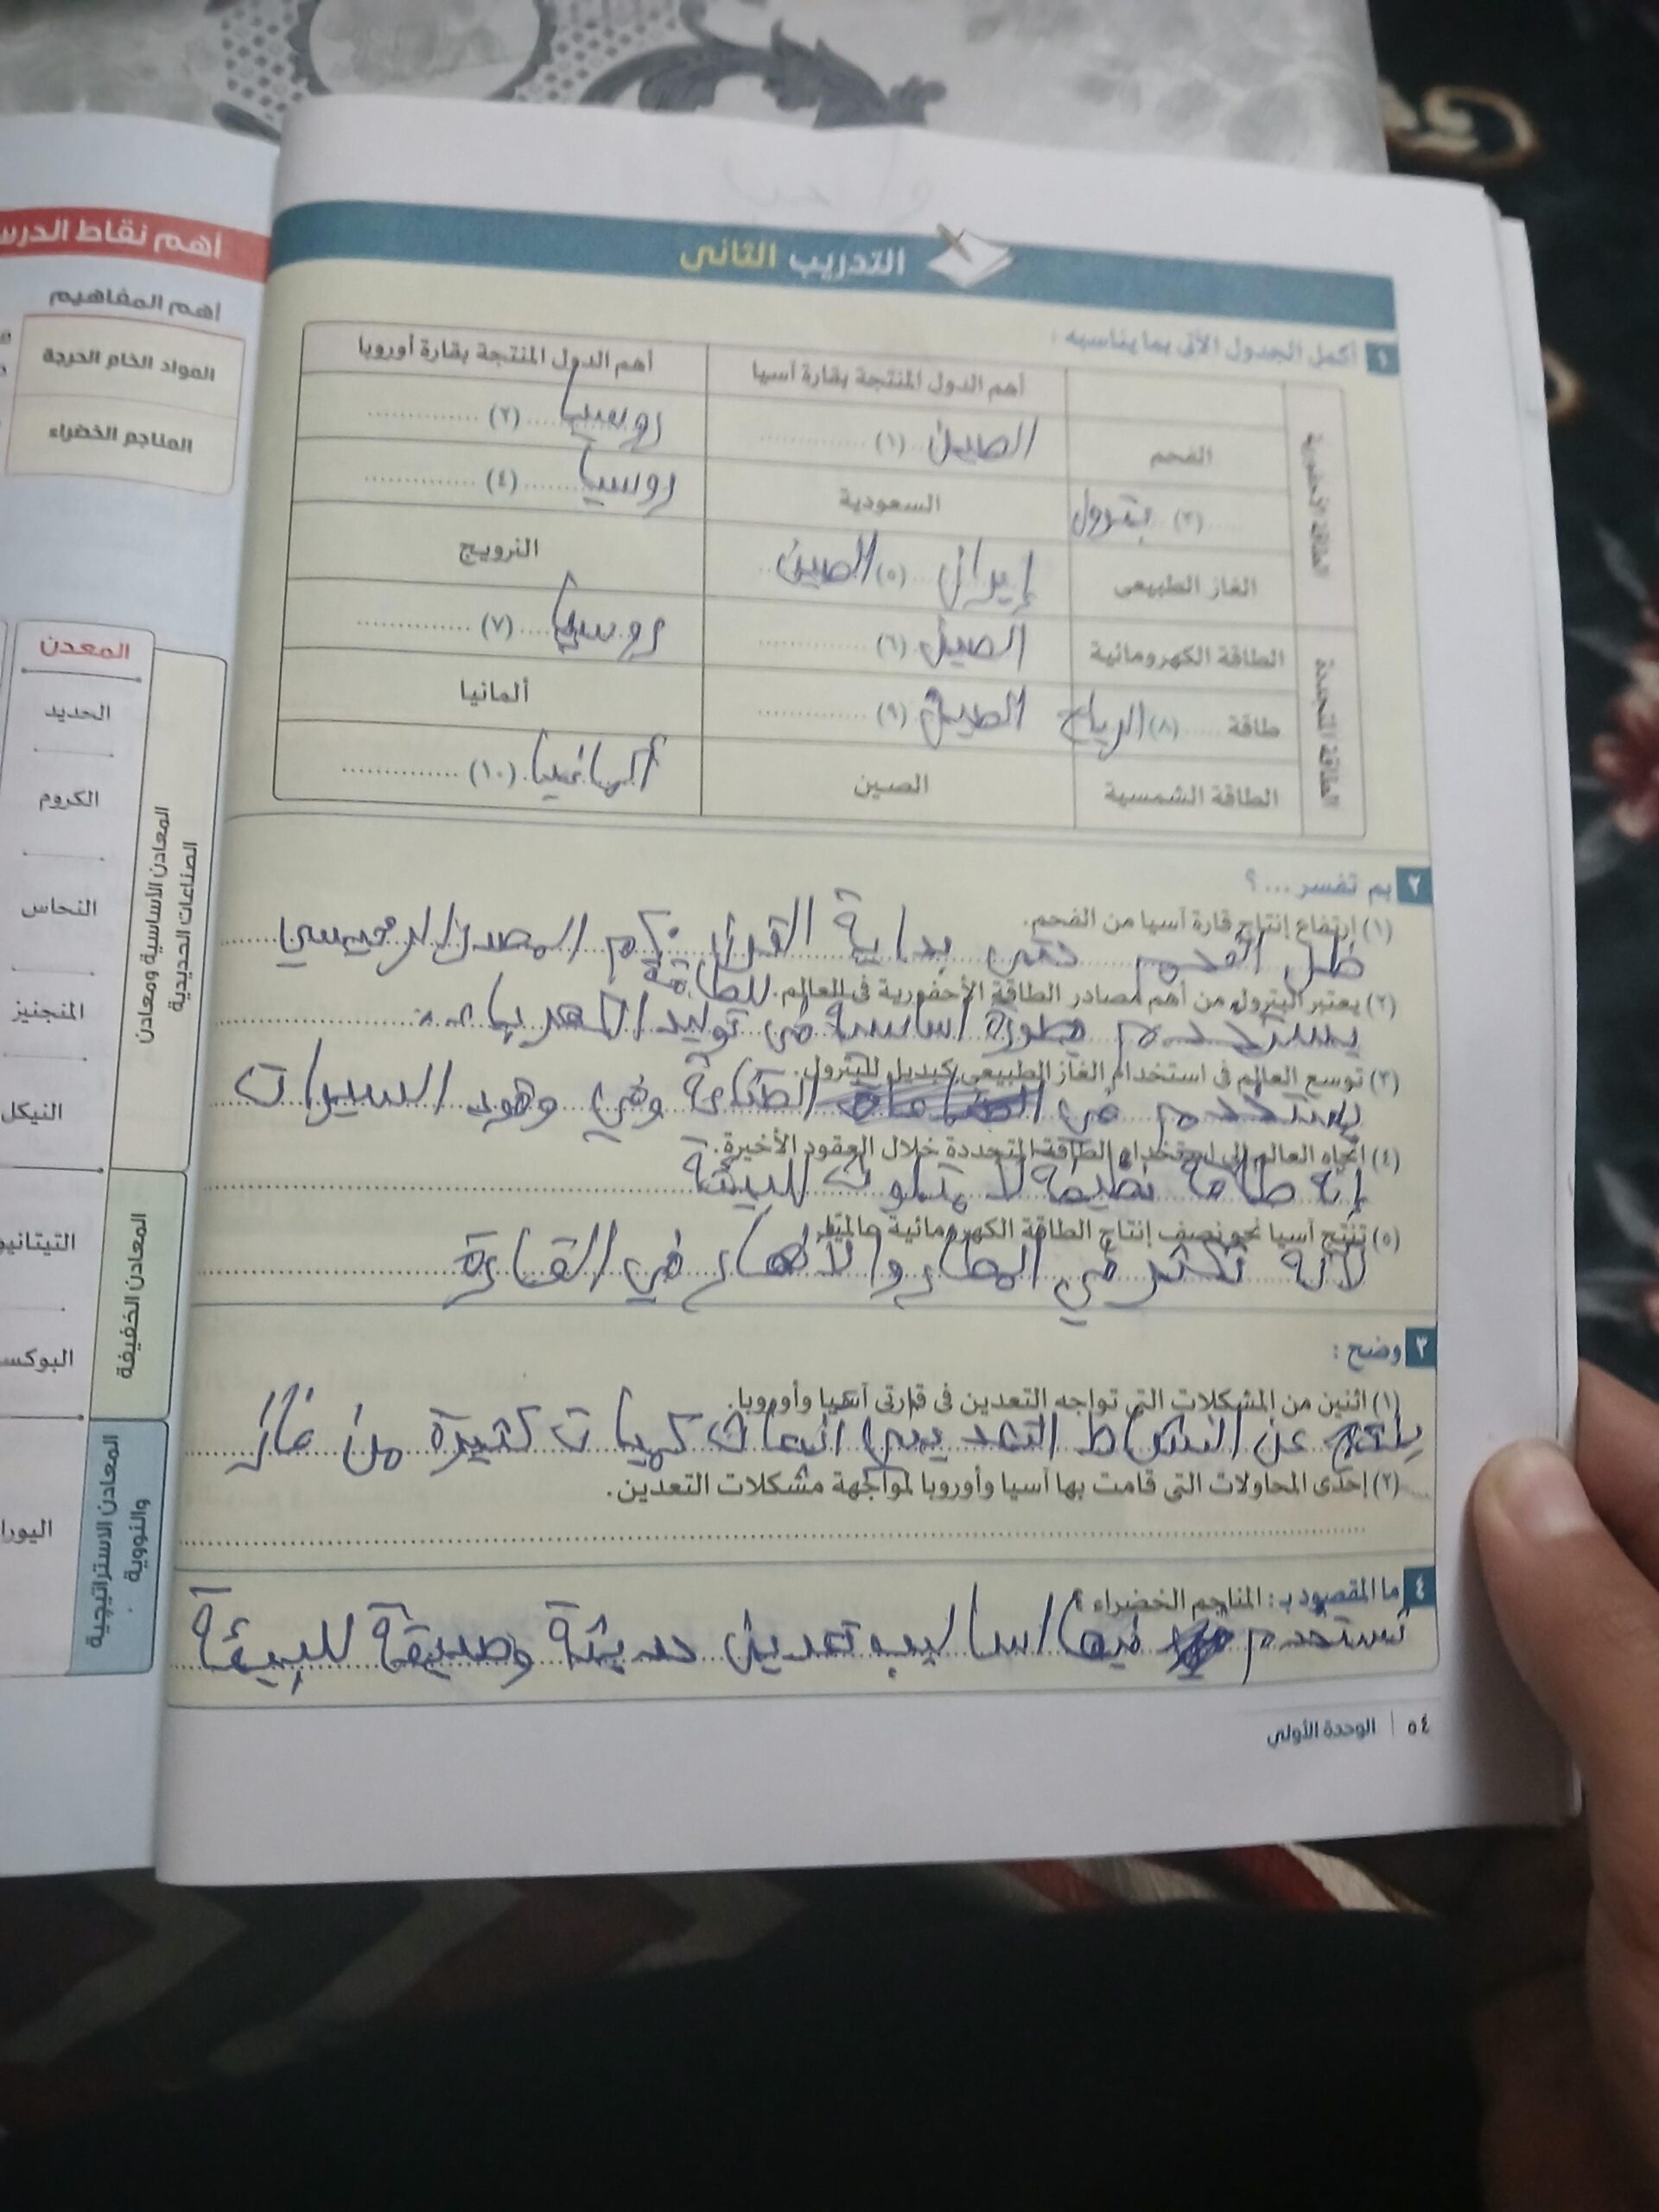 التدريب الثانى
١ أكمل الجدول الآتى بما يناسبه :
أهم الدول المنتجة بقارة آسيا
أهم الدول المنتجة بقارة أوروبا
الطاقة الأحفورية
الفحم
الصين (١)
روسيا (٢)
(٣) بترول
السعودية
روسيا (٤)
الغاز الطبيعى
إيران (٥) الصين
النرويج
الطاقة المتجددة
الطاقة الكهرومائية
الصين (٦)
روسيا (٧)
طاقة (٨) الرياح
الصين (٩)
ألمانيا
الطاقة الشمسية
الصين
ألمانيا (١٠)
٢ بم تفسر ... ؟
(١) ارتفاع إنتاج قارة آسيا من الفحم.
ظل الفحم حتى بداية القرن ٢٠م المصدر الرئيسي
للطاقة
(٢) يعتبر البترول من أهم مصادر الطاقة الأحفورية فى العالم.
يستخدم بصورة اساسية في توليد الكهرباء
(٣) توسع العالم فى استخدام الغاز الطبيعى كبديل للبترول.
يستخدم في الصناعة وفي وقود السيرات
(٤) اتجاه العالم إلى استخدام الطاقة المتجددة خلال العقود الأخيرة.
إنه طاقة نضيفة لا متلوث للبيئة
(٥) تنتج آسيا نحو نصف إنتاج الطاقة الكهرومائية عالميًا.
لأنه تكثر في المطار والأنهار في القارة
٣ وضح :
(١) اثنين من المشكلات التى تواجه التعدين فى قارتى آسيا وأوروبا.
ينتج عن النشاط التعديني انبعاث كميات كثيرة من غاز
(٢) إحدى المحاولات التى قامت بها آسيا وأوروبا لمواجهة مشكلات التعدين.
٤ ما المقصود بـ : المناجم الخضراء ؟
تستخدم فيها اساليب تعدين حديثة وصديقة للبيئة
٥٤ | الوحدة الأولى
أهم نقاط الدرس
أهم المفاهيم
المواد الخام الحرجة
المناجم الخضراء
المعدن
المعادن الأساسية ومعادن
الصناعات الحديدية
الحديد
الكروم
النحاس
المنجنيز
النيكل
المعادن الخفيفة
المعادن الاستراتيجية
والنووية